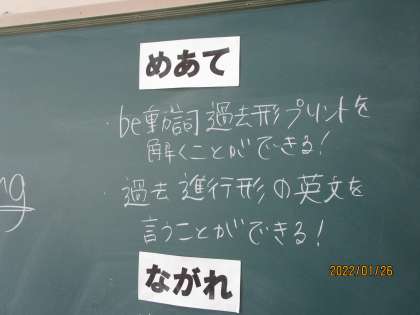 めあて
・be動詞 過去形プリントを
解くことができる!
・過去進行形の英文を
言うことができる!
ng
ながれ
2022/01/26